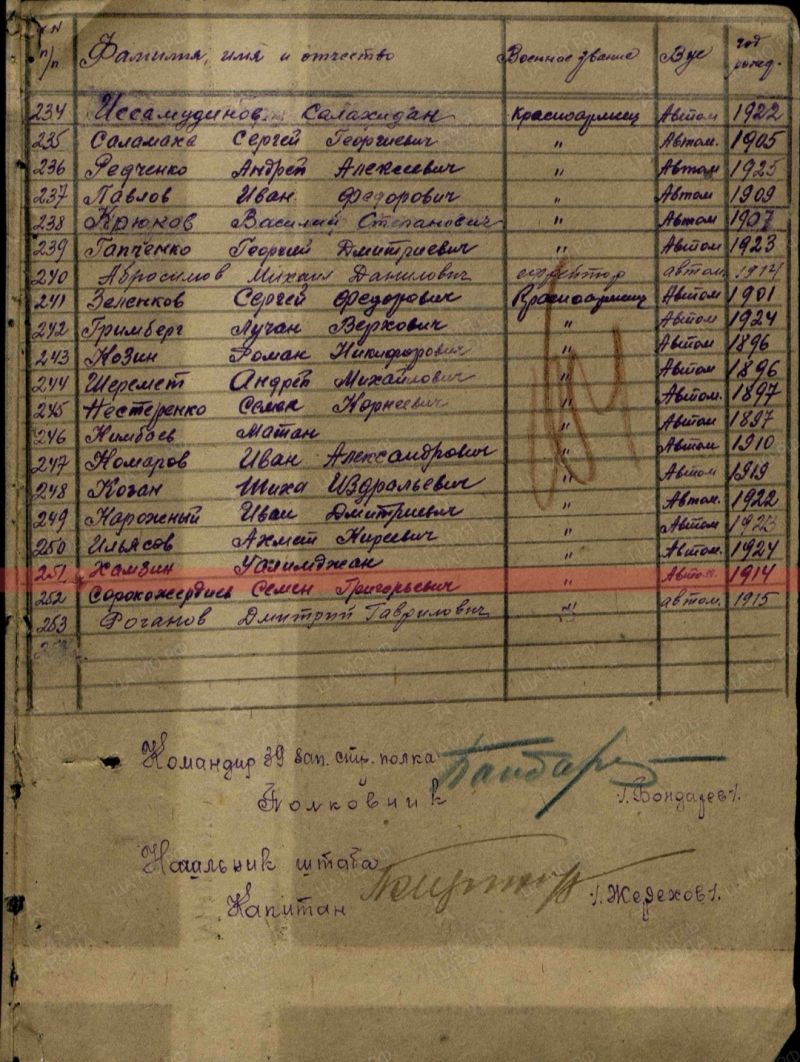 №№ п/п Фамилия, имя и отчество Военное звание Вус год рожд.
234 Иссамудинов Салахидан Красноармеец Автом 1922
235 Саламаха Сергей Георгиевич " Автом. 1905
236 Редченко Андрей Алексеевич " Автом 1925
237 Павлов Иван Федорович " Автом 1909
238 Крюков Василий Степанович " Автом 1907
239 Гапченко Георгий Дмитриевич " Автом 1923
240 Абросимов Михаил Данилович ефрейтор автом. 1914
241 Зеленков Сергей Федорович Красноармеец Автом 1901
242 Гримберг Лучан Верхович " Автом 1924
243 Козин Роман Никифорович " Автом 1896
244 Шеремет Андрей Михайлович " Автом 1896
245 Нестеренко Семен Корнеевич " Автом. 1897
246 Кимбаев Матан " Автом 1897
247 Комаров Иван Александрович " Автом 1910
248 Коган Шиха Издральевич " Автом 1919
249 Карожный Иван Дмитриевич " Автом. 1922
250 Ильясов Ахмат Кереевич " Автом 1923
251 Хамзин Уалимджан " Автом. 1924
252 Сорокожердиев Семен Григорьевич " Автом. 1914
253 Роганов Дмитрий Гаврилович " автом. 1915
Командир 39 зап. стр. полка
Полковник /. Бондарев /.
Начальник штаба
Капитан /. Жерехов /.